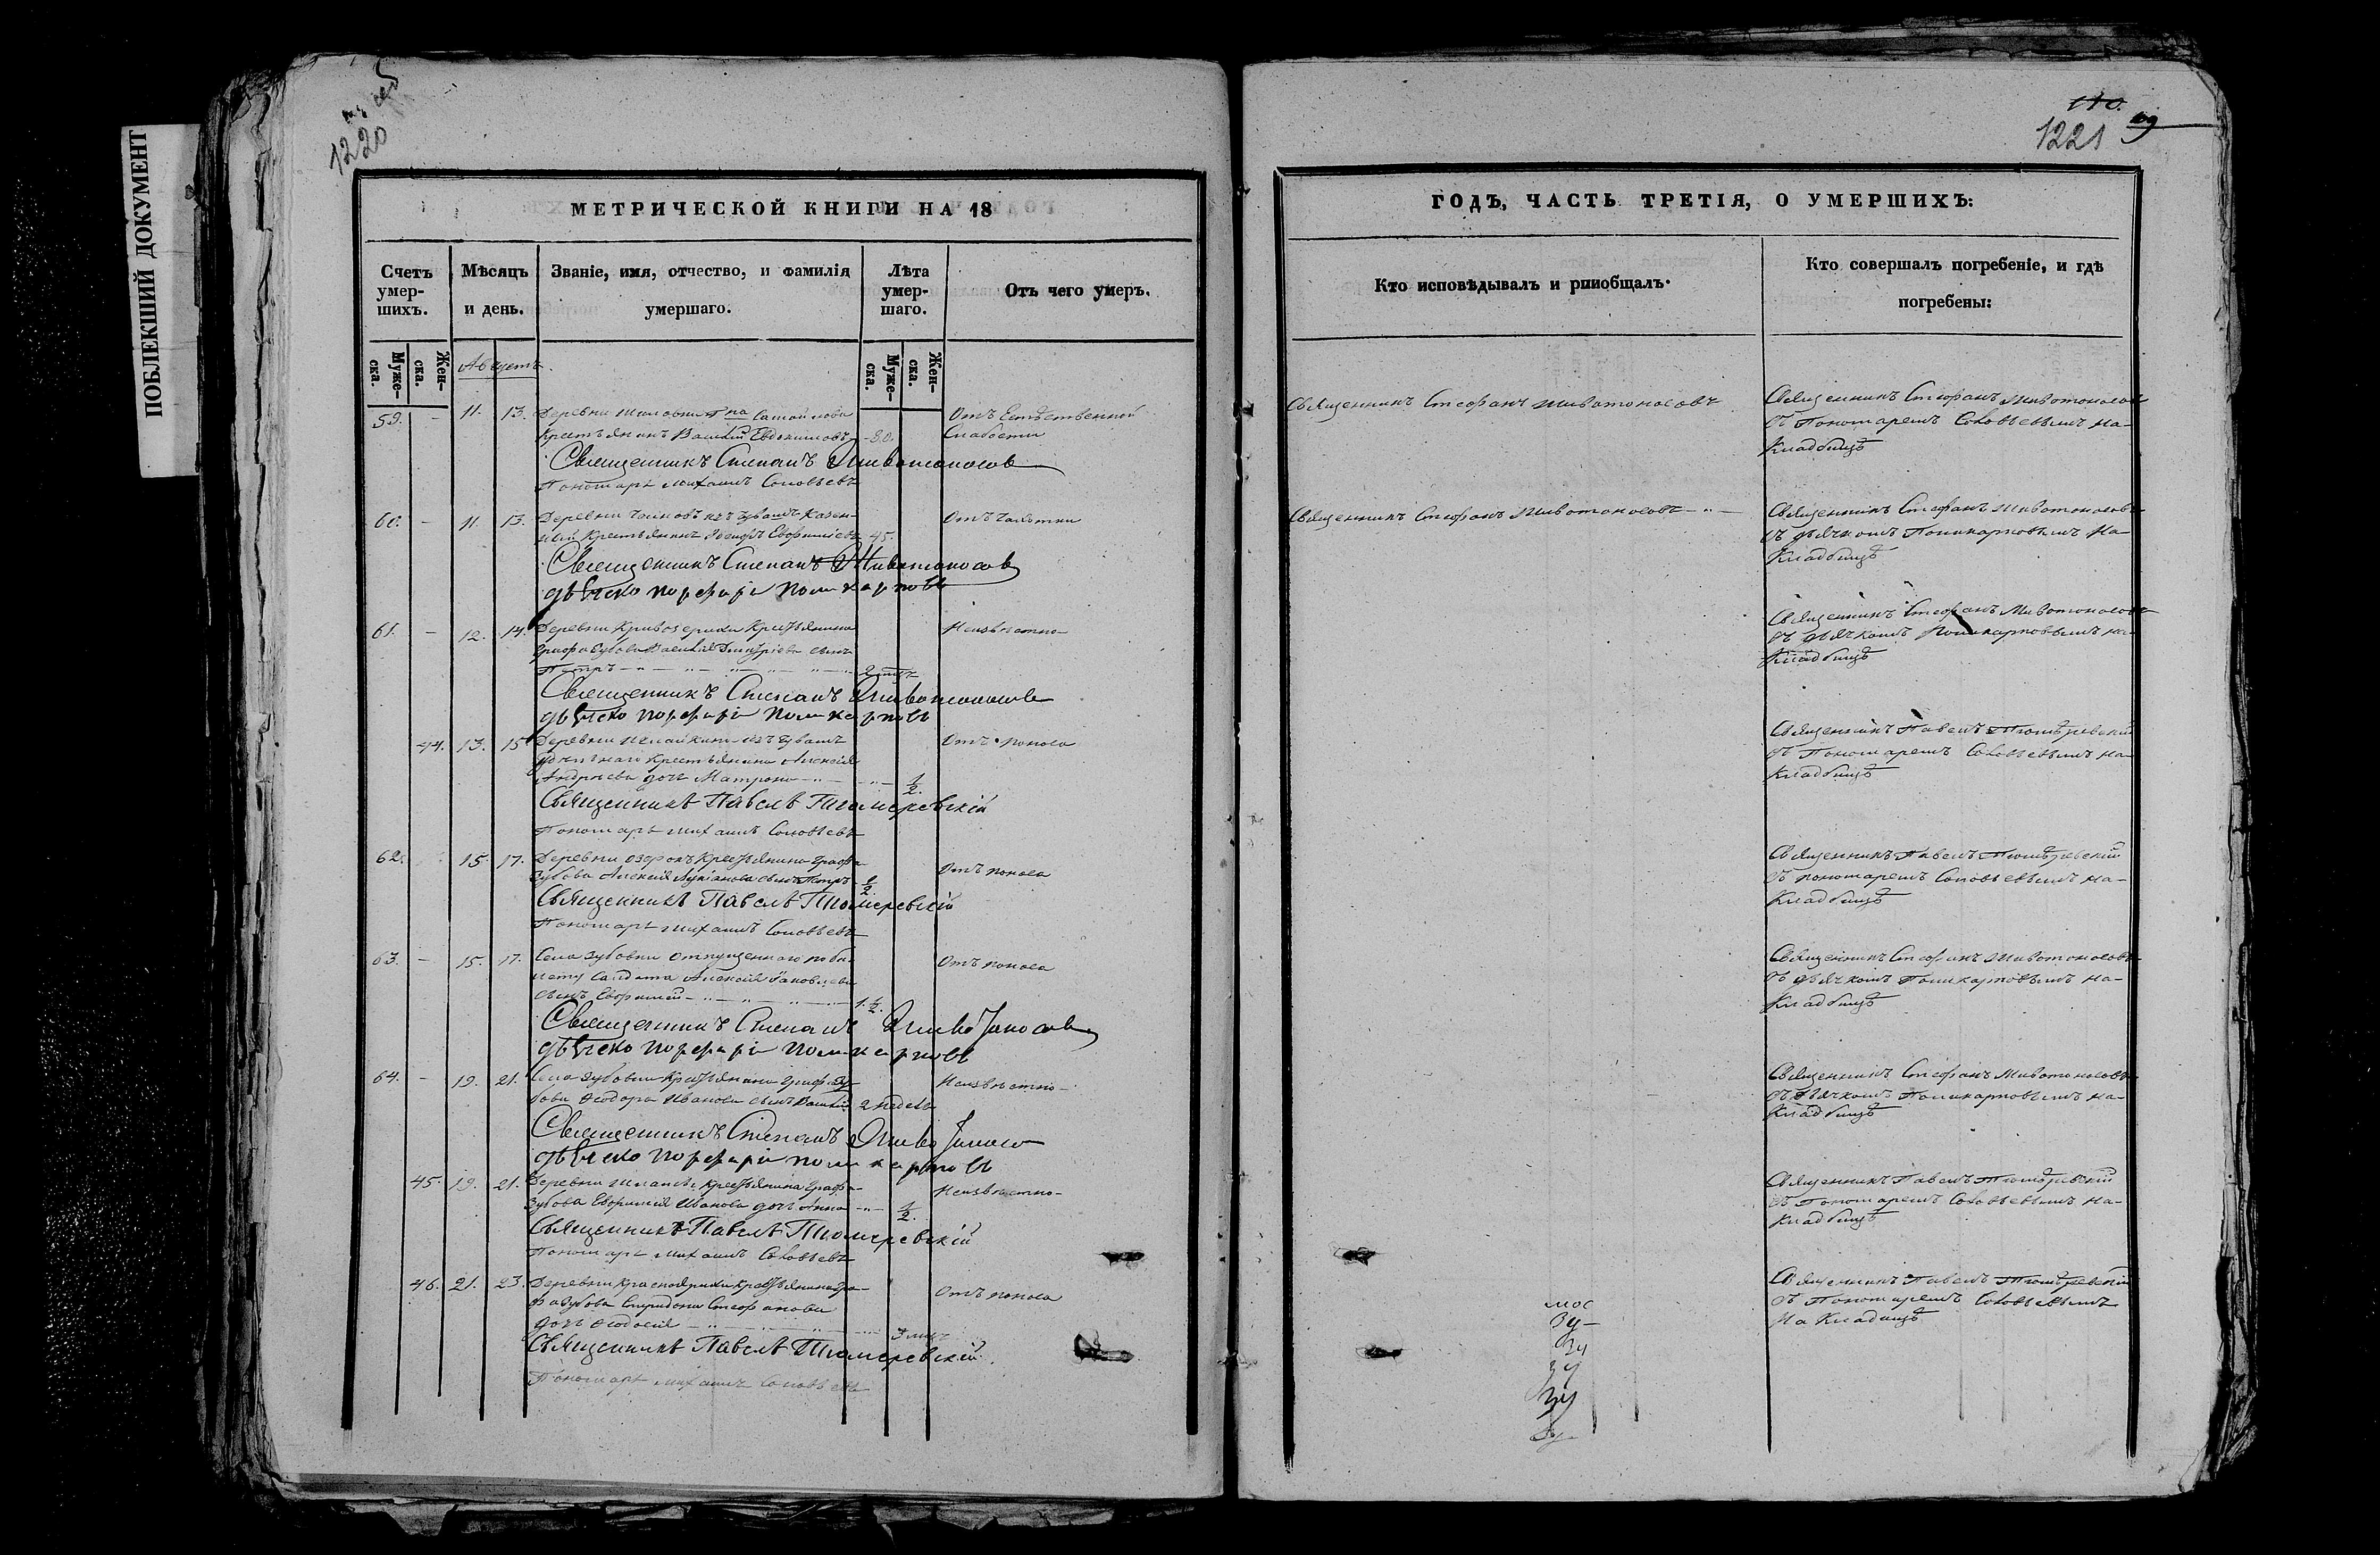 ПОБЛЕКШИЙ ДОКУМЕНТ
1220
МЕТРИЧЕСКОЙ КНИГИ НА 18
Счетъ умер-шихъ.
Мѣсяцъ и день.
Званіе, имя, отчество, и фамилія умершаго.
Лѣта умер-шаго.
Отъ чего умеръ.
Муже-ска.
Жен-ска.
Муже-ска.
Жен-ска.
Августъ.
59. - 11. 13. Деревни Самойлова Отъ Естественной
Крестьянинъ Василій Евдокимовъ 80. Слабости
Священникъ Стефанъ Животоносов
Пономарь Михаилъ Соловьевъ
60. - 11. 13. Деревни изъ Чувашъ Казен- Отъ Чахотки
ный Крестьянинъ Евфиміевъ 45.
Священникъ Стефанъ Животоносов
дьячекъ Порфирій Поликарповъ
61. - 12. 14. Деревни Кривозерихи Крестьянина Неизвѣстно
Графа Зубова Василія Дмитріева сынъ
Петръ
Священникъ Стефанъ Животоносов
дьячекъ Порфирій Поликарповъ
44. 13. 15. Деревни изъ Чувашъ Отъ поноса
Крестьянина Алексія
Андреева дочь Матрона 1/2.
Священникъ Павелъ Тюмеревскій
Пономарь Михаилъ Соловьевъ
62. 15. 17. Деревни Крестьянина Графа Отъ поноса
Зубова Алексія сынъ Петръ 1/2.
Священникъ Павелъ Тюмеревскій
Пономарь Михаилъ Соловьевъ
63. - 15. 17. Села Зубовки отпущеннаго по би- Отъ поноса
лету Салдата Алексія Яковлева
сынъ Евфимій 1. 1/2.
Священникъ Стефанъ Животоносов
дьячекъ Порфирій Поликарповъ
64. - 19. 21. Села Зубовки Крестьянина Графа Зу- Неизвѣстно
бова Ѳеодора Иванова сынъ Василій 2 недель
Священникъ Стефанъ Животоносов
дьячекъ Порфирій Поликарповъ
45. 19. 21. Деревни Крестьянина Графа Неизвѣстно
Зубова Евфимія Иванова дочь Анна 1/2.
Священникъ Павелъ Тюмеревскій
Пономарь Михаилъ Соловьевъ
46. 21. 23. Деревни Красноярихи Крестьянина Гра- Отъ поноса
фа Зубова Спиридона Стефанова
дочь Ѳеодосія
Священникъ Павелъ Тюмеревскій
Пономарь Михаилъ Соловьевъ
110.
109
1221
ГОДЪ, ЧАСТЬ ТРЕТІЯ, О УМЕРШИХЪ:
Кто исповѣдывалъ и рпиобщалъ.
Кто совершалъ погребеніе, и гдѣ погребены:
Священникъ Стефанъ Животоносовъ
Священникъ Стефанъ Животоносовъ
съ Пономаремъ Соловьевымъ на
Кладбищѣ
Священникъ Стефанъ Животоносовъ
Священникъ Стефанъ Животоносовъ
съ дьячкомъ Поликарповымъ на
Кладбищѣ
Священникъ Стефанъ Животоносовъ
съ дьячкомъ Поликарповымъ на
Кладбищѣ
Священникъ Павелъ Тюмеревскій
съ Пономаремъ Соловьевымъ на
Кладбищѣ
Священникъ Павелъ Тюмеревскій
съ пономаремъ Соловьевымъ на
Кладбищѣ
Священникъ Стефанъ Животоносовъ
съ дьячкомъ Поликарповымъ на
Кладбищѣ
Священникъ Стефанъ Животоносовъ
съ дьячкомъ Поликарповымъ на
Кладбищѣ
Священникъ Павелъ Тюмеревскій
съ Пономаремъ Соловьевымъ на
Кладбищѣ
Священникъ Павелъ Тюмеревскій
съ Пономаремъ Соловьевымъ
на Кладищѣ